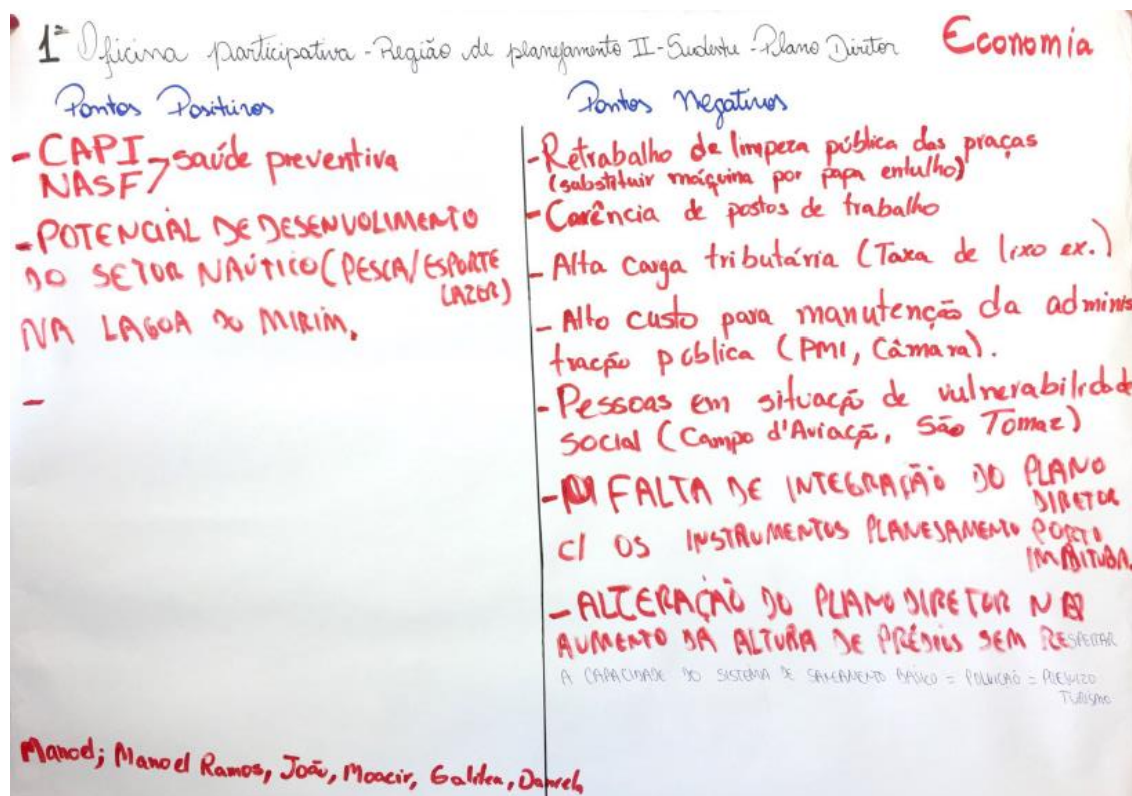 1ª Oficina participativa - Região de planejamento II - Sudeste - Plano Diretor
Economia
Pontos Positivos
- CAPI
NASF > saúde preventiva
- POTENCIAL DE DESENVOLIMENTO
DO SETOR NAÚTICO (PESCA/ESPORTE
LAZER)
NA LAGOA DO MIRIM.
-
Pontos Negativos
- Retrabalho de limpeza pública das praças
(substituir máquina por papa entulho)
- Carência de postos de trabalho
- Alta carga tributária (Taxa de lixo ex.)
- Alto custo para manutenção da adminis
tração pública (PMI, Câmara).
- Pessoas em situação de vulnerabilidade
social (Campo d'Aviação, São Tomaz)
- FALTA DE INTEGRAÇÃO DO PLANO
DIRETOR
C/ OS INSTRUMENTOS PLANEJAMENTO PORTO
IMBITUBA.
- ALTERAÇÃO DO PLANO DIRETOR NO
AUMENTO DA ALTURA DE PRÉDIOS SEM RESPEITAR
A CAPACIDADE DO SISTEMA DE SANEAMENTO BÁSICO = POLUIÇÃO = PREJUIZO
TURISMO
Manoel; Manoel Ramos, João, Moacir, Galilea,